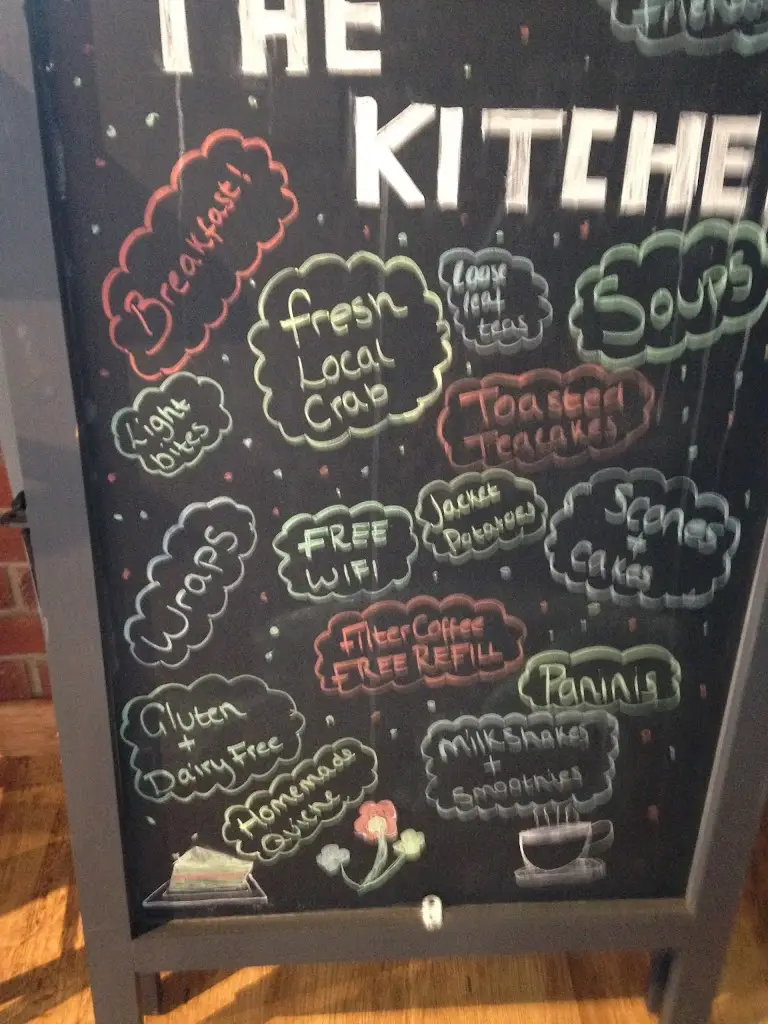 THE
KITCHE
Breakfast!
fresh
Local
Crab
Loose
leaf
teas
Soups
Light
bites
Toasted
Teacakes
Wraps
FREE
WIFI
Jacket
Potatoes
Scones
+
cakes
Filter Coffee
FREE REFILL
Paninis
Gluten
+
Dairy Free
Milkshakes
+
Smoothies
Homemade
Quiche